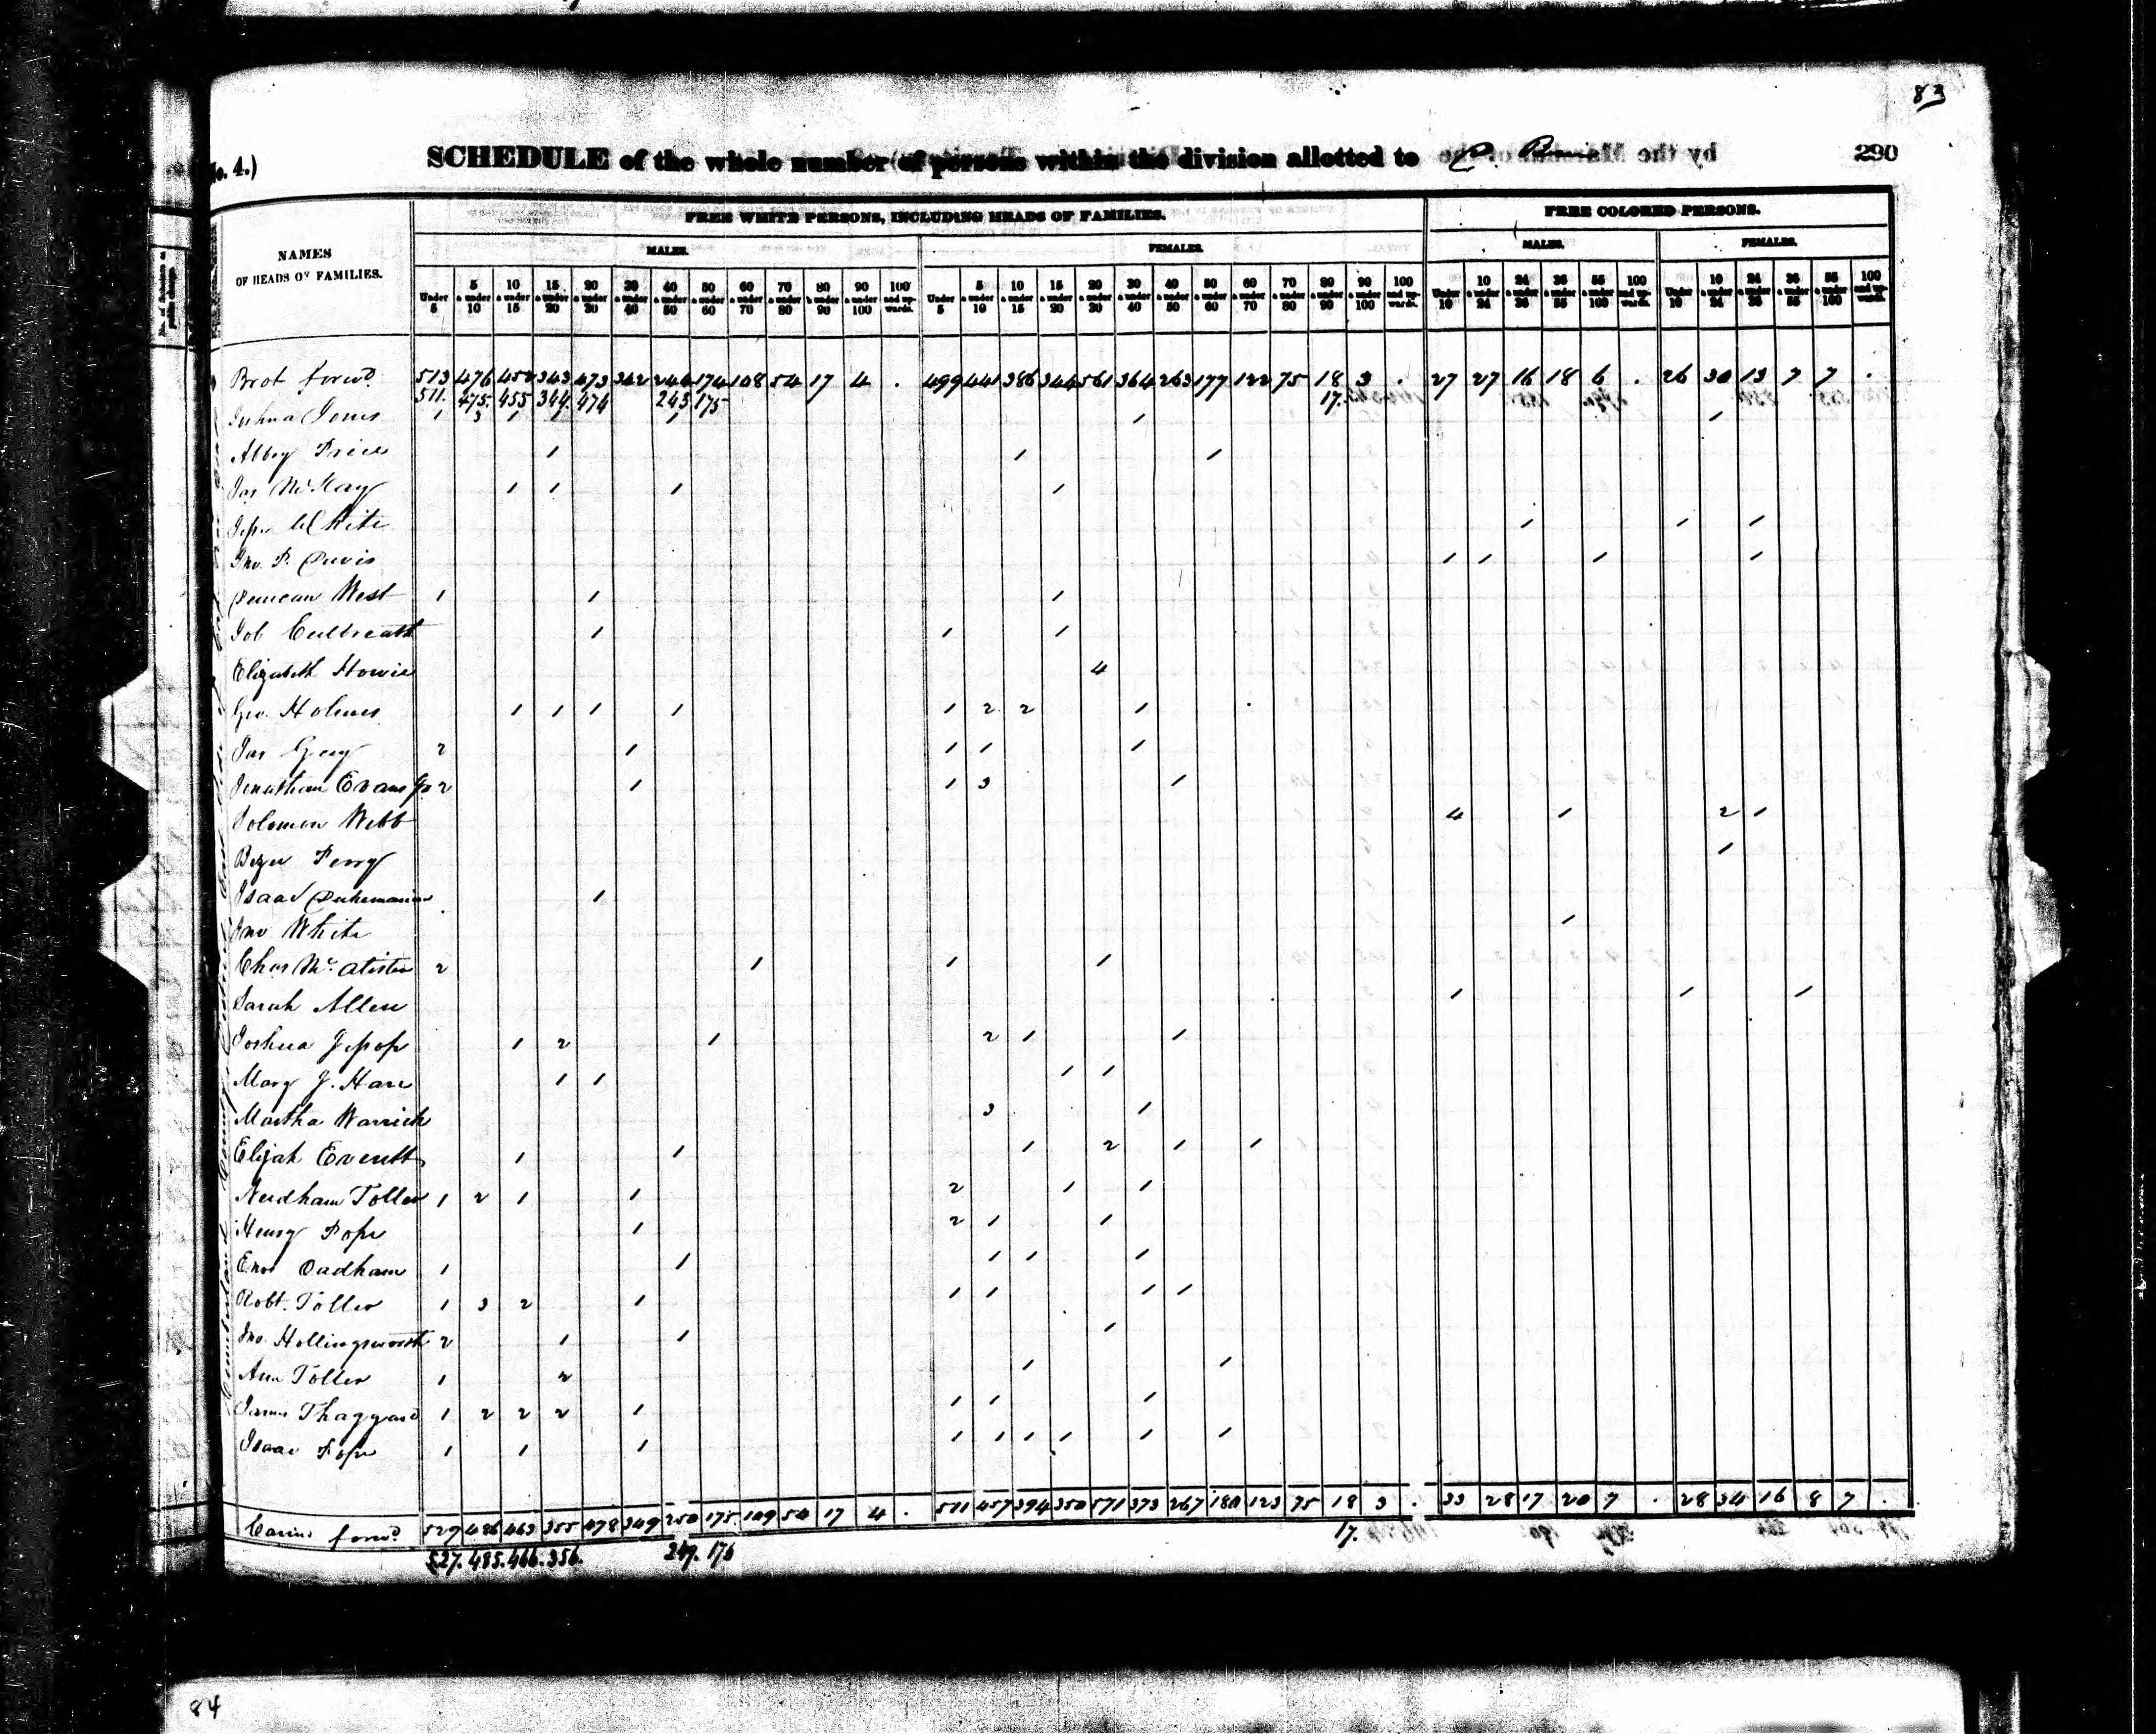 83
o. 4.)
SCHEDULE of the whole number of persons within the division allotted to
by the
290
NAMES
OF HEADS OF FAMILIES.
FREE WHITE PERSONS, INCLUDING HEADS OF FAMILIES.
FREE COLORED PERSONS.
MALES. FEMALES. MALES. FEMALES.
Under 5 | 5 & under 10 | 10 & under 15 | 15 & under 20 | 20 & under 30 | 30 & under 40 | 40 & under 50 | 50 & under 60 | 60 & under 70 | 70 & under 80 | 80 & under 90 | 90 & under 100 | 100 and upwards. | Under 5 | 5 & under 10 | 10 & under 15 | 15 & under 20 | 20 & under 30 | 30 & under 40 | 40 & under 50 | 50 & under 60 | 60 & under 70 | 70 & under 80 | 80 & under 90 | 90 & under 100 | 100 and upwards. | Under 10 | 10 & under 24 | 24 & under 36 | 36 & under 55 | 55 & under 100 | 100 and upwards. | Under 10 | 10 & under 24 | 24 & under 36 | 36 & under 55 | 55 & under 100 | 100 and upwards.
Brot forwd 513 476 452 343 473 342 244 174 108 54 17 4 . 499 441 386 344 561 364 263 177 122 75 18 3 . 27 27 16 18 6 . 26 30 13 7 7 .
511. 475. 455 344. 474 243 175 17.
Joshua Jones 1 3 1 1 1 1 1
Abbey Price 1 1 1
Jas McKay 1 1 1 1
White 1 1 1
Jno. P. Davis 1 1 1 1
Duncan West 1 1 1
Job Culbreath 1 1 1
Elizabeth Howie 4
Geo. Holmes 1 1 1 1 1 2 2 1
Jas Guy 2 1 1 1 1
Jonathan Evans Jr 2 1 1 3 1
Solomon Webb 4 1 2 1
Perry 1
Isaac 1
Jno White 1
Chas McAlister 2 1 1 1
Sarah Allen 1 1 1
Joshua Jessop 1 2 1 2 1 1
Mary J. Hare 1 1 1 1
Martha Warrick 3 1
Elijah Everitt 1 1 1 2 1 1
Needham Toller 1 2 1 1 2 1 1
Henry Pope 1 2 1 1
Enos Oadham 1 1 1 1 1
Robt. Toller 1 3 2 1 1 1 1 1
Jno. Hollingsworth 2 1 1 1
Ann Toller 1 2 1 1
James Thaggard 1 2 2 2 1 1 1 1
Isaac Pope 1 1 1 1 1 1 1 1 1
Carried forwd. 529 486 463 355 478 349 250 175. 109 54 17 4 . 511 457 394 350 571 373 267 180 123 75 18 3 . 33 28 17 20 7 . 28 34 16 8 7 .
527. 485. 466. 356. 249. 176 17.
84